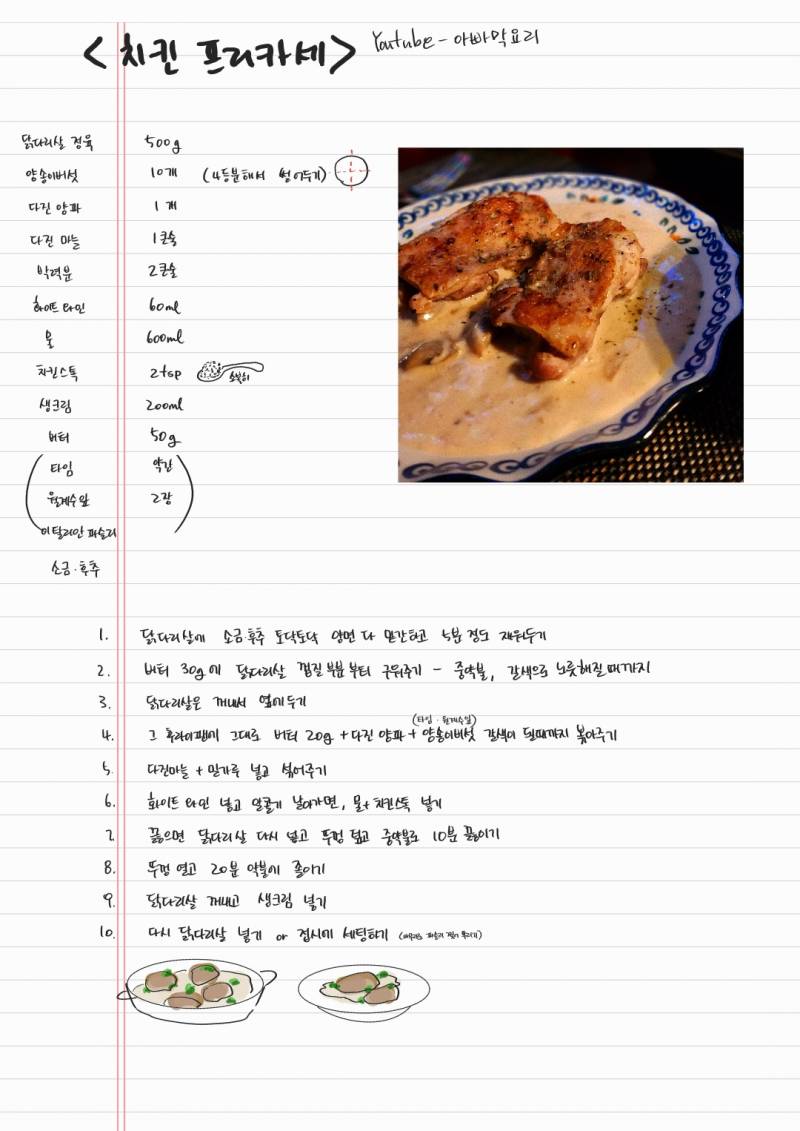 <치킨 프리카세> Youtube - 아빠막요리
닭다리살 정육 500g
양송이버섯 10개 (4등분해서 썰어두기)
다진 양파 1개
다진 마늘 1큰술
박력분 2큰술
화이트 와인 60ml
물 600ml
치킨스톡 2tsp 소복히
생크림 200ml
버터 50g
타임 약간
월계수잎 2장
이탈리안 파슬리
소금·후추
1. 닭다리살에 소금·후추 토닥토닥 양면 다 밑간하고 5분 정도 재워두기
2. 버터 30g에 닭다리살 껍질부분부터 구워주기 - 중약불, 갈색으로 노릇해질때까지
3. 닭다리살은 꺼내서 옆에두기
(타임·월계수잎)
4. 그 후라이팬에 그대로 버터 20g + 다진 양파 + 양송이버섯 갈색이 될때까지 볶아주기
5. 다진마늘 + 밀가루 넣고 섞어주기
6. 화이트 와인 넣고 알콜기 날아가면, 물+치킨스톡 넣기
7. 끓으면 닭다리살 다시 넣고 뚜껑 덮고 중약불로 10분 끓이기
8. 뚜껑 열고 20분 약불에 졸이기
9. 닭다리살 꺼내고 생크림 넣기
10. 다시 닭다리살 넣기 or 접시에 세팅하기 (마무리로 파슬리 뿌리기)